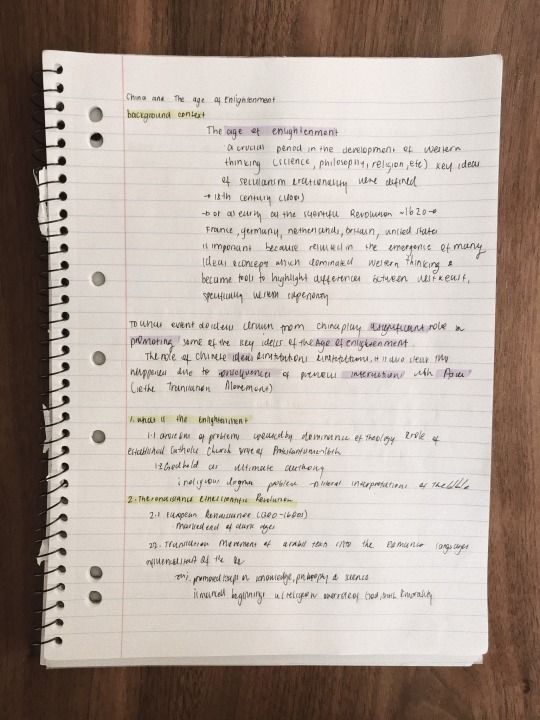 China and The age of Enlightenment
background context
The age of enlightenment
a crucial period in the development of western
thinking (science, philosophy, religion, etc) key ideas
of secularism & rationality were defined
→ 18th century
→ or as early as the scientific Revolution ~1620 →
France, germany, netherlands, britain, united states
is important because resulted in the emergence of many
ideas & concepts which dominated western thinking &
became tools to highlight differences between west & east,
specifically western
To what extent do ideas drawn from china play a significant role in
promoting some of the key ideas of the Age of enlightenment
The role of chinese ideas & institutions
happened due to consequences of previous interaction with Asia
(ie the Translation Movement)
1. what is the enlightenment
1.1 arose out of problems caused by dominance of theology & role of
established Catholic Church
God held as ultimate authority
i. religious dogma problem - literal interpretations of the bible
2. The renaissance & the scientific Revolution
2.1 European Renaissance
marked end of dark ages
2.2. Translation Movement of arabic texts into the Romance languages
of the
promoted knowledge, philosophy & science
ii. marked beginnings of God, truth & morality